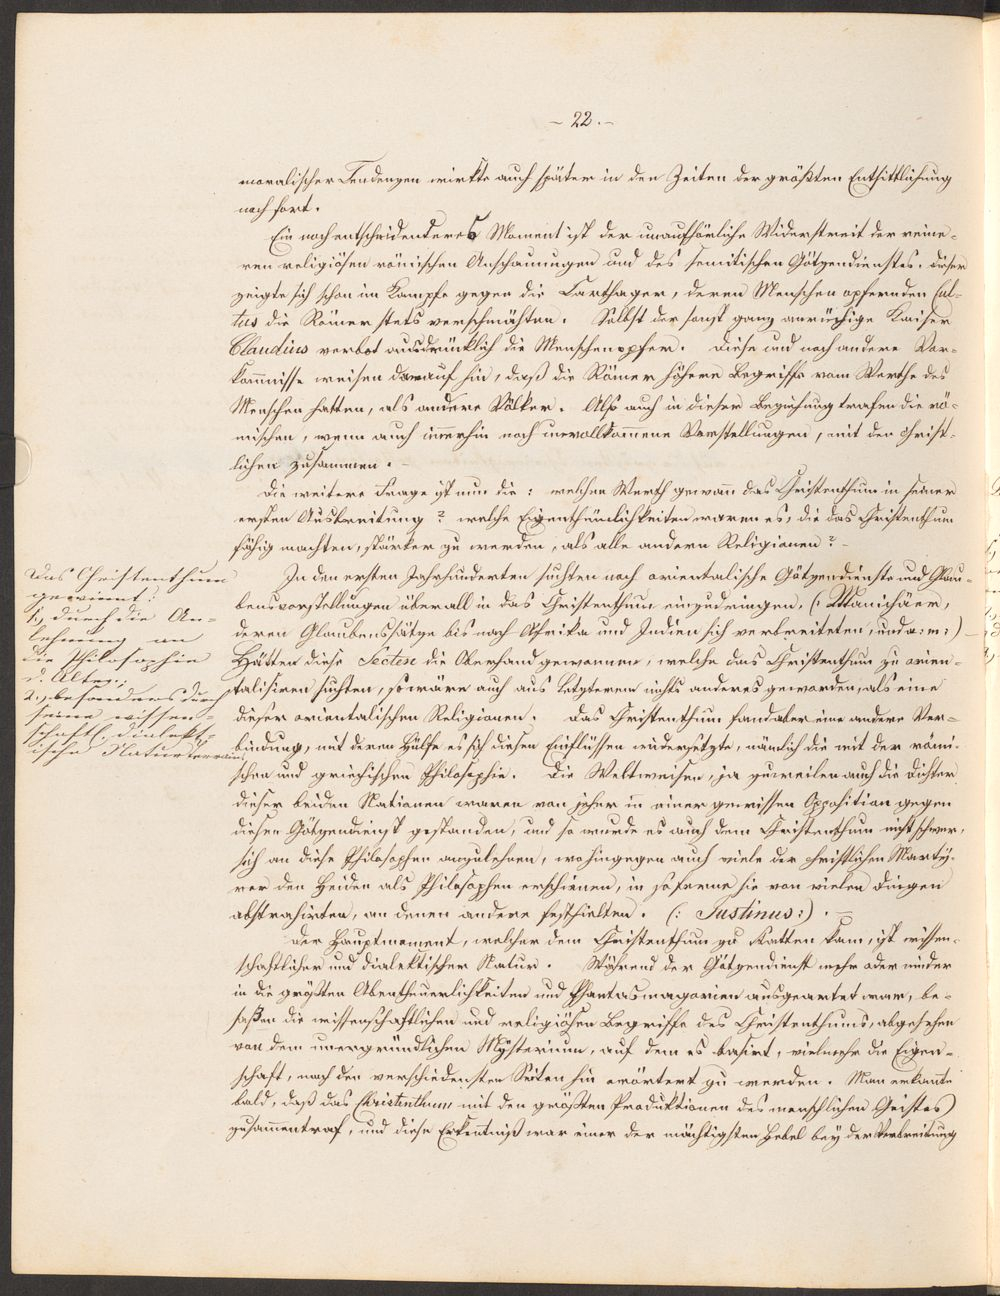 – 22. –
moralischer Tendenzen wirkte auch später in den Zeiten der größten Entsittlichung
noch fort.
Ein noch entscheidenderes Moment ist der unaufhörliche Widerstreit der reine-
ren religiösen römischen Anschauungen und des semitischen Götzendienstes. Dieser
zeigte sich schon im Kampfe gegen die Carthager, deren Menschen opfernden Cul-
tus die Römer stets verschmähten. Selbst der sonst ganz anrüchige Kaiser
Claudius verbot ausdrücklich die Menschenopfer. Diese und noch andere Vor-
kommnisse weisen darauf hin, daß die Römer höhere Begriffe vom Werthe des
Menschen hatten, als andere Völker. Also auch in dieser Beziehung trafen die rö-
mischen, wenn auch immerhin noch unvollkommene Vorstellungen, mit den christ-
lichen zusammen. –
Die weitere Frage ist nun die: welchen Werth gewann das Christenthum in seiner
ersten Ausbreitung? welche Eigenthümlichkeiten waren es, die das Christenthum
fähig machten, stärker zu werden, als alle andern Religionen? –
Das Christenthum
gewinnt:
1., durch die An-
lehnung an
die Philosophie
d. Alten;
2., besonders durch
seine wissen-
schaftl., dialekt-
ische Natur
In den ersten Jahrhunderten suchten noch orientalische Götzendienste und Glau-
bensvorstellungen überall in das Christenthum einzudringen, (: Manichäer,
deren Glaubenssätze bis nach Afrika und Indien sich verbreiteten, und a: m:) –
Hätten diese Secten die Oberhand gewonnen, welche das Christenthum zu orien-
talisiren suchten, so wäre auch aus Letzterem nichts anderes geworden, als eine
dieser orientalischen Religionen. Das Christenthum fand aber eine andere Ver-
bindung, mit deren Hülfe es sich diesen Einflüssen widersetzte, nämlich die mit der römi-
schen und griechischen Philosophie. Die Weltweisen, ja zuweilen auch die Dichter
dieser beiden Nationen waren von jeher in einer gewissen Opposition gegen
diesen Götzendienst gestanden, und so wurde es auch dem Christenthum nicht schwer,
sich an diese Philosophen anzulehnen, wohingegen auch viele der christlichen Marty-
rer den Heiden als Philosophen erschienen, in soferne sie von vielen Dingen
abstrahirten, an denen andere festhielten. (: Justinus :). –
Der Hauptmoment, welcher dem Christenthum zu Statten kam, ist wissen-
schaftlicher und dialektischer Natur. Während der Götzendienst mehr oder minder
in die größten Abentheuerlichkeiten und Phantasmagorien ausgeartet war, be-
saßen die wissenschaftlichen und religiösen Begriffe des Christenthums, abgesehen
von dem unergründlichen Mysterium, auf dem es basirt, vielmehr die Eigen-
schaft, nach den verschiedensten Seiten hin erörtert zu werden. Man erkannte
bald, daß das Christenthum mit den größten Produktionen des menschlichen Geistes
zusammentraf, und diese Erkenntniß war einer der mächtigsten Hebel bey der Verbreitung